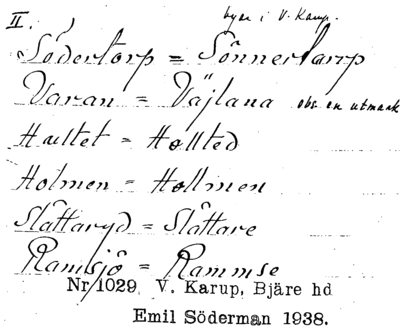 II. byar i V. Karup.
Södertorp = Sönnertarrp
Varan = Väjlana obs. en utmark
Haltet = Hollted
Holmen = Hollmen
Slättaryd = Slättare
Ramsjö = Rammse
Nr 1029 V. Karup, Bjäre hd
Emil Söderman 1938.